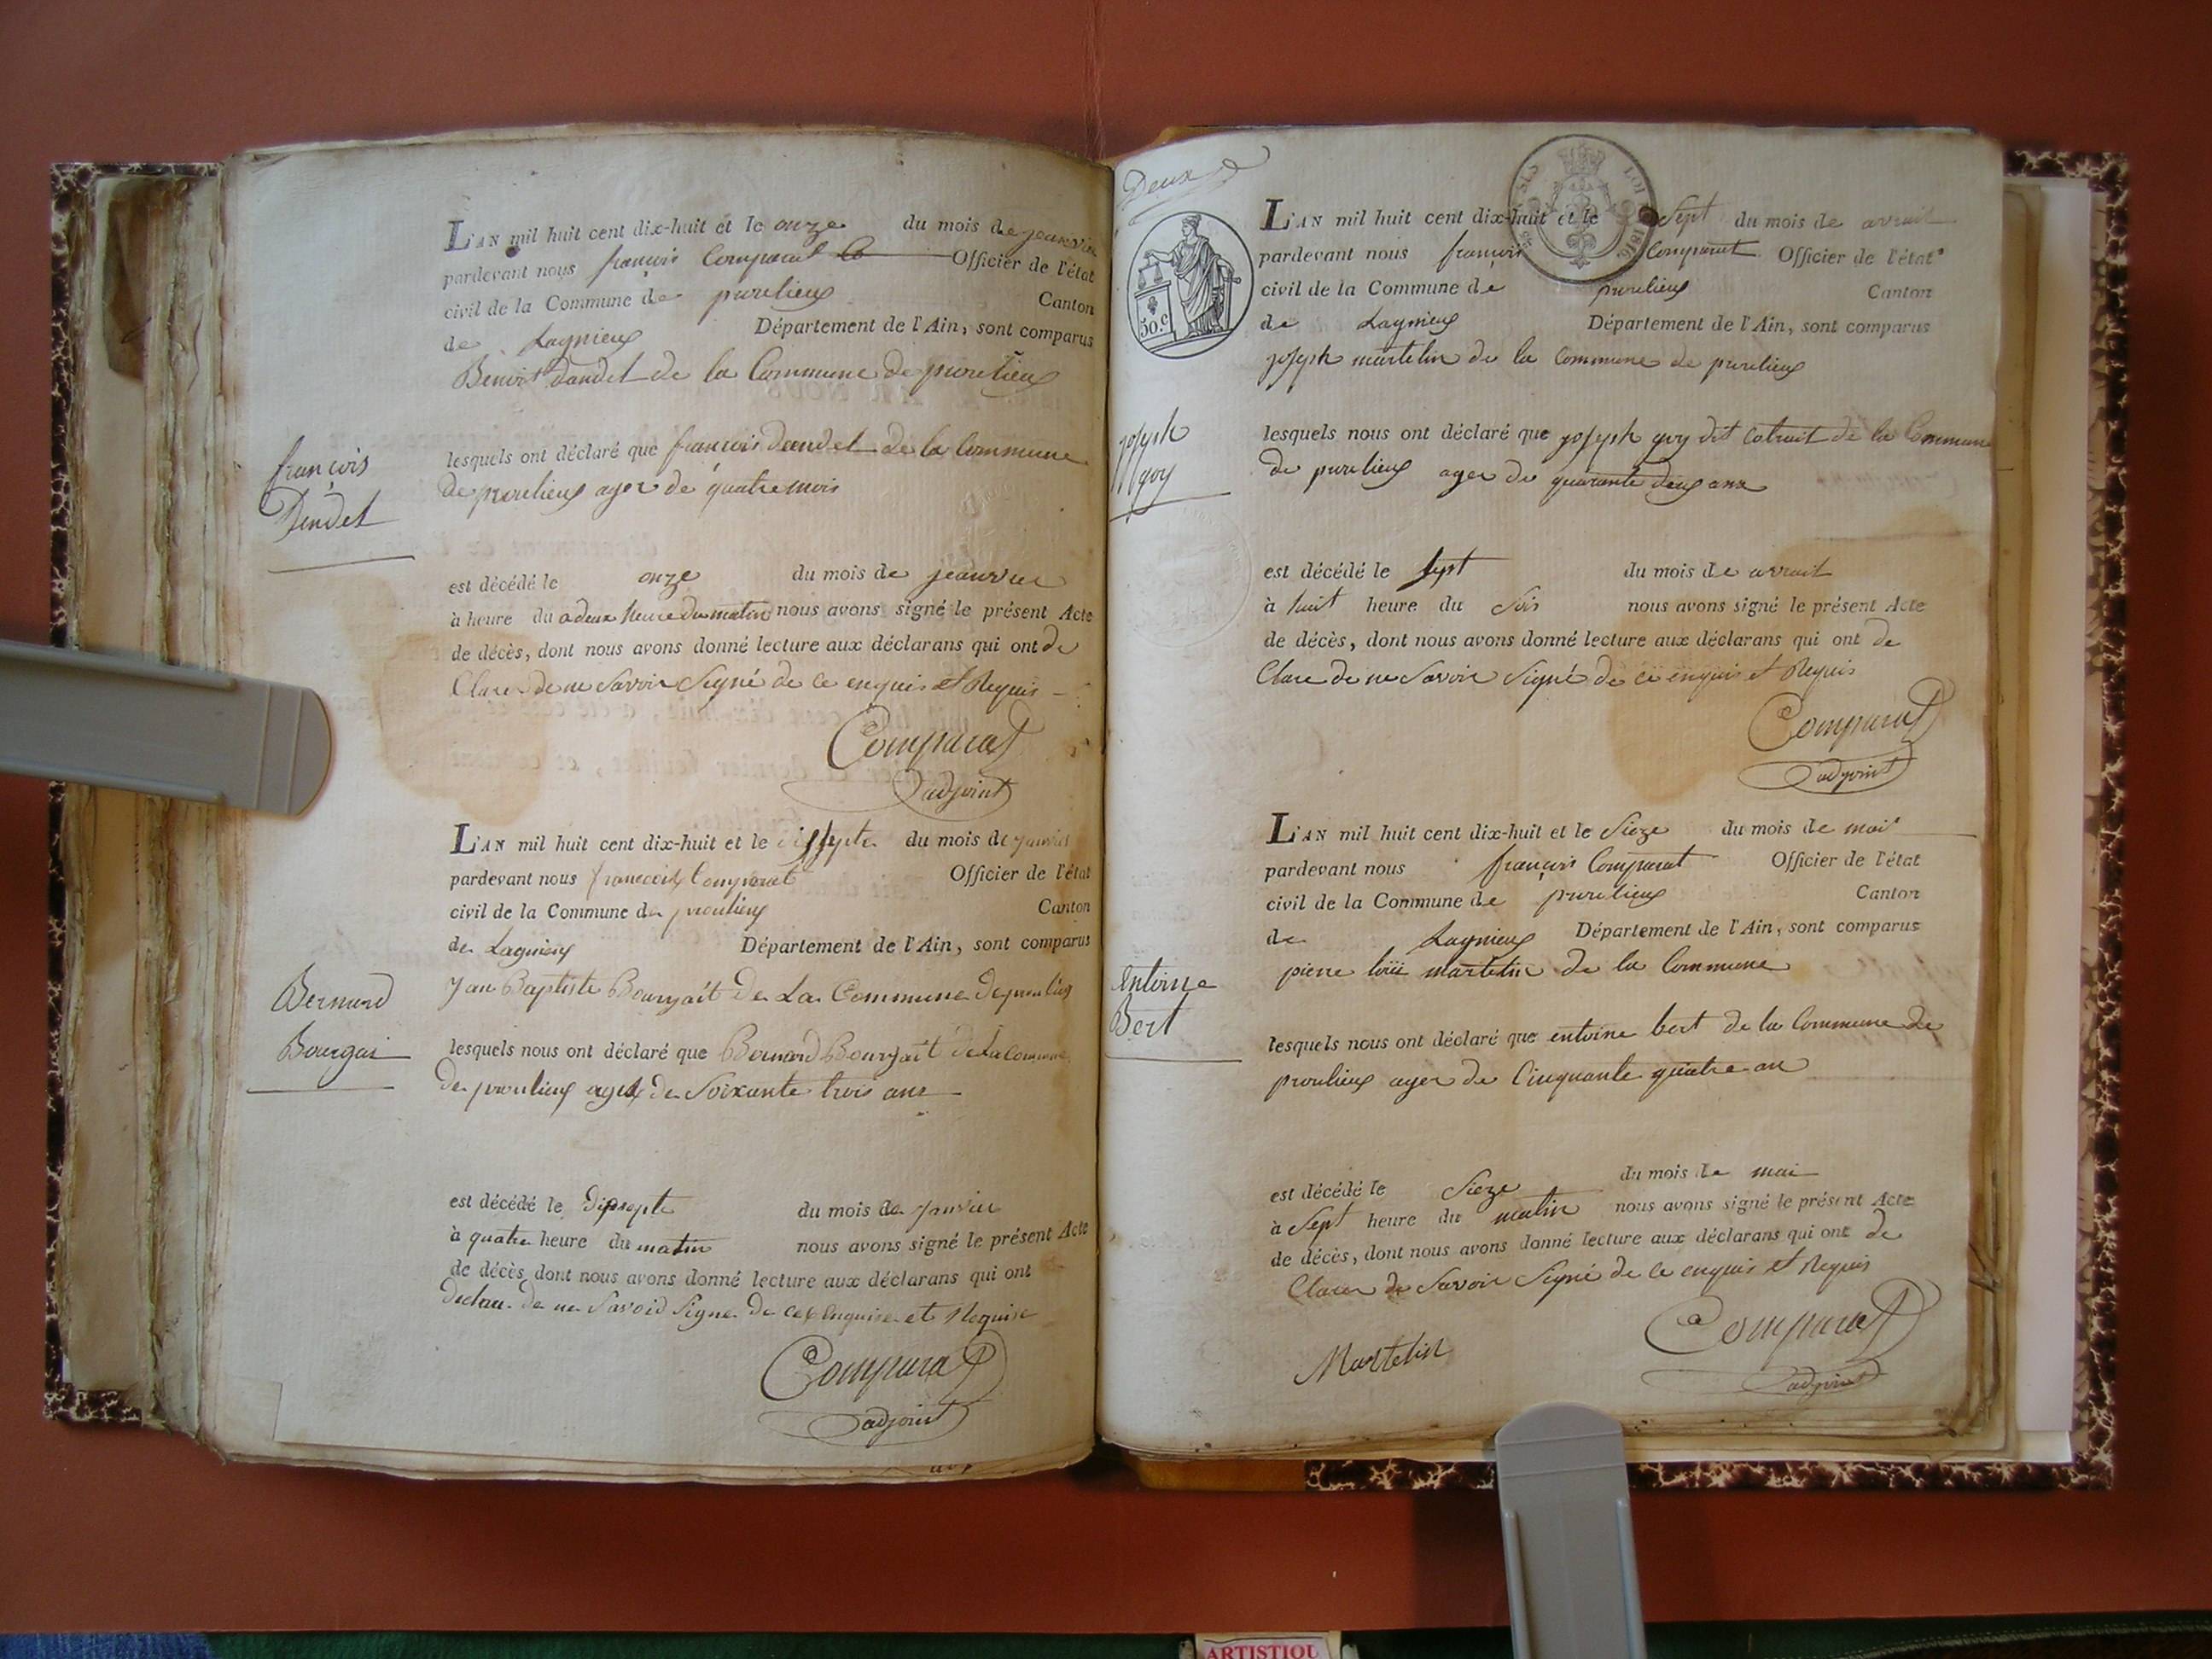 L'AN mil huit cent dix-huit et le onze du mois de jeanvier
pardevant nous françois Comparat Officier de l'état
civil de la Commune de proulieux Canton
de Lagnieux Département de l'Ain, sont comparus
Benoit dandel de la Commune de proulieux
françois
Dendel
lesquels ont déclaré que francois dandel de la Commune
de proulieux ager de quatre mois
est décédé le onze du mois de jeanvier
à heure du a deux heure du matin nous avons signé le présent Acte
de décès, dont nous avons donné lecture aux déclarans qui ont de
Clarer de ne Savoir Signé de ce enquis et Requis
Comparat
adjoint
L'AN mil huit cent dix-huit et le dissepte du mois de janvier
pardevant nous francois Comparat Officier de l'état
civil de la Commune de proulieux Canton
de Lagnieux Département de l'Ain, sont comparus
Bernard
Bourgai
Jan Baptiste Bourgait De La Commune de proulieux
lesquels nous ont déclaré que Bernard Bourgait de La Commune
de proulieux agé de Soixante trois ans
est décédé le Dixsepte du mois de Janvier
à quatre heure du matin nous avons signé le présent Acte
de décès, dont nous avons donné lecture aux déclarans qui ont
declare de ne Savoid Signe de ce Enquise et Requise
Comparat
adjoint
Deux
30.c
LOI 1816
L'AN mil huit cent dix-huit et le Sept du mois de avrail
pardevant nous françois Comparat Officier de l'état
civil de la Commune de proulieux Canton
de Lagnieux Département de l'Ain, sont comparus
joseph martelin de la Commune de proulieux
joseph
goy
lesquels nous ont déclaré que joseph goy dit de la Commune
de proulieux ager de quarante deux ans
est décédé le Sept du mois de avrail
à huit heure du Soir nous avons signé le présent Acte
de décès, dont nous avons donné lecture aux déclarans qui ont de
Clare de ne Savoir Signé de ce enquis et Requis
Comparat
adjoint
L'AN mil huit cent dix-huit et le Sieze du mois de mai
pardevant nous françois Comparat Officier de l'état
civil de la Commune de proulieux Canton
de Lagnieux Département de l'Ain, sont comparus
pierre loüi martelin de la Commune
Antoine
Bert
lesquels nous ont déclaré que entoine bert de la Commune de
proulieux ager de Cinquante quatre an
est décédé le Sieze du mois de mai
à Sept heure du matin nous avons signé le présent Acte
de décès, dont nous avons donné lecture aux déclarans qui ont de
Clarer de Savoir Signé de ce enquis et Requis
Martelin
Comparat
adjoint
ARTISTIQU